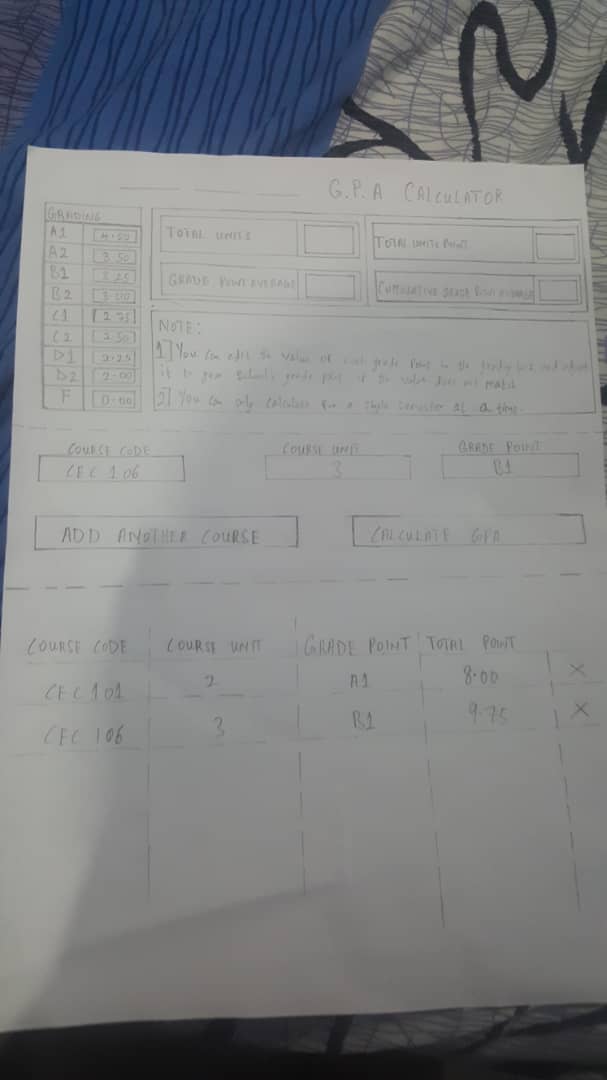 G.P.A CALCULATOR
GRADING
A1 4.00
A2 3.50
B1 3.25
B2 3.00
C1 2.75
C2 2.50
D1 2.25
D2 2.00
F 0.00
TOTAL UNITS
TOTAL UNITS POINT
GRADE POINT AVERAGE
CUMULATIVE GRADE POINT AVERAGE
NOTE:
1] You can edit the value of each grade point in the grading box and adjust
it to your school's grade point if the value does not match
2] You can only calculate for a single semester at a time.
COURSE CODE COURSE UNIT GRADE POINT
CEC 106 3 B1
ADD ANOTHER COURSE CALCULATE GPA
COURSE CODE COURSE UNIT GRADE POINT TOTAL POINT
CEC 101 2 A1 8.00 X
CEC 106 3 B1 9.75 X